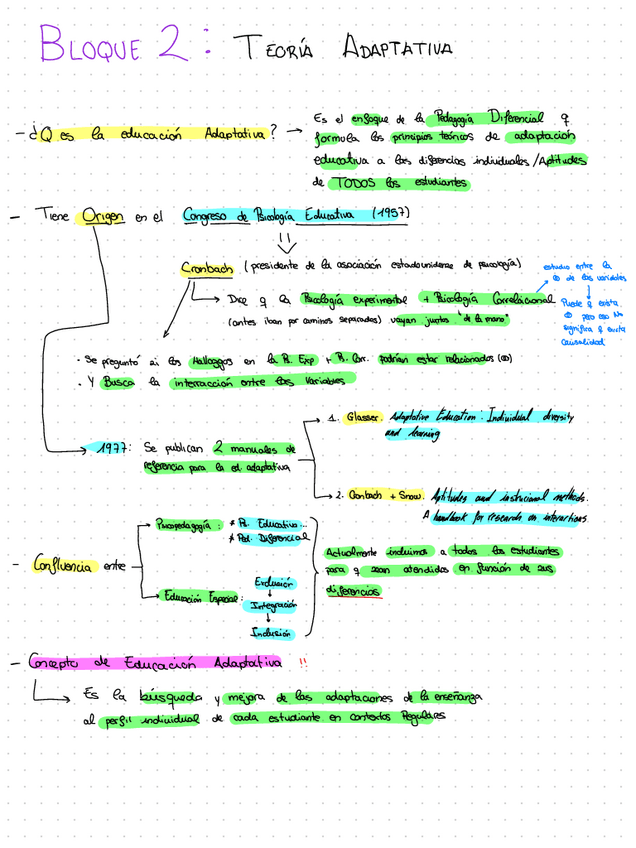 BLOQUE 2: TEORÍA ADAPTATIVA
- ¿Q es la educación Adaptativa? → Es el enfoque de la Pedagogía Diferencial q
formula los principios teóricos de adaptación
educativa a las diferencias individuales/Aptitudes
de TODOS los estudiantes
- Tiene Origen en el Congreso de Psicología Educativa (1957)
Cronbach (presidente de la asociación estadounidense de psicología)
→ Dice q la Psicología experimental + Psicología Correlacional
(antes iban por caminos separados) vayan juntas "de la mano"
estudio entre la
de las variables
Puede q exista
pero eso NO
significa q exista
causalidad
· Se preguntó si los Hallazgos en la Ps. Exp + Ps. Cor. podrían estar relacionados (∞)
· Y Busca la interacción entre las Variables
→ 1977: Se publican 2 manuales de
referencia para la ed. adaptativa
→ 1. Glasser. Adaptative Education: Individual diversity
and learning
→ 2. Conbach + Snow. Aptitudes and instrucional methods.
A handbook for research on interactions
- Confluencia entre
→ Psicopedagogía: * Ps. Educativa...
* Ped. Diferencial
→ Educación Especial: Exclusión
↓
Integración
↓
Inclusión
Actualmente incluimos a todos los estudiantes
para q sean atendidos en función de sus
diferencias
- Concepto de Educación Adaptativa !!
→ Es la búsqueda y mejora de las adaptaciones de la enseñanza
al perfil individual de cada estudiante en contextos Regulares